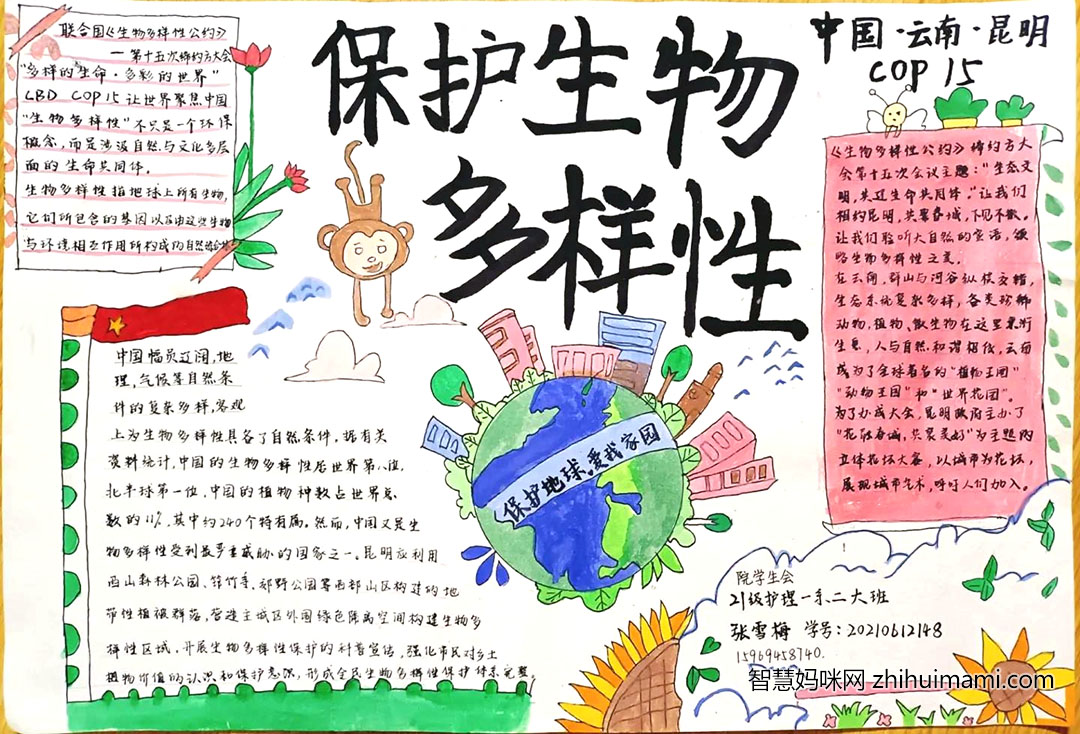 联合国《生物多样性公约》
一第十五次缔约方大会
"多样的生命·多彩的世界"
CBD COP15 让世界聚焦中国
"生物多样性"不只是一个环保
概念,而是涉及自然与文化多层
面的生命共同体。
生物多样性指地球上所有生物,
它们所包含的基因以及由这些生物
与环境相互作用所构成的自然综合体
保护生物
多样性
中国·云南·昆明
COP 15
《生物多样性公约》缔约方大
会第十五次会议主题:"生态文
明,共建生命共同体。"让我们
相约昆明,共聚春城,不见不散。
让我们聆听大自然的
略生物多样性之美。
在云南,群山与河谷纵横交错,
生态系统复杂多样,各类珍稀
动物,植物、微生物在这里繁衍
生息,人与自然和谐相依,云南
成为了全球著名的"植物王国"
"动物王国"和"世界花园"。
为了办成大会,昆明政府主办了
"花融春城,共聚美好"为主题的
立体花坛大赛,以城市为花坛,
展现城市艺术,呼吁人们加入。
中国幅员辽阔,地
理,气候等自然条
件的复杂多样,客观
上为生物多样性具备了自然条件,据有关
资料统计,中国的生物多样性居世界第八位,
北半球第一位,中国的植物种数占世界总
数的11%,其中约240个特有属。然而,中国又是生
物多样性受到最严重威胁的国家之一。昆明应利用
西山森林公园、筇竹寺、郊野公园等西部山区构建的地
带性植被群落,营造主城区外围绿色隔离空间构建生物多
样性区域,开展生物多样性保护的科普宣传,强化市民对乡土
植物价值的认识和保护意识,形成全民生物多样性保护体系完整。
保护地球,爱我家园
院学生会
21级护理一系二大班
张雪梅 学号:20210612148
15969458740.
智慧妈咪网 zhihuimami.com